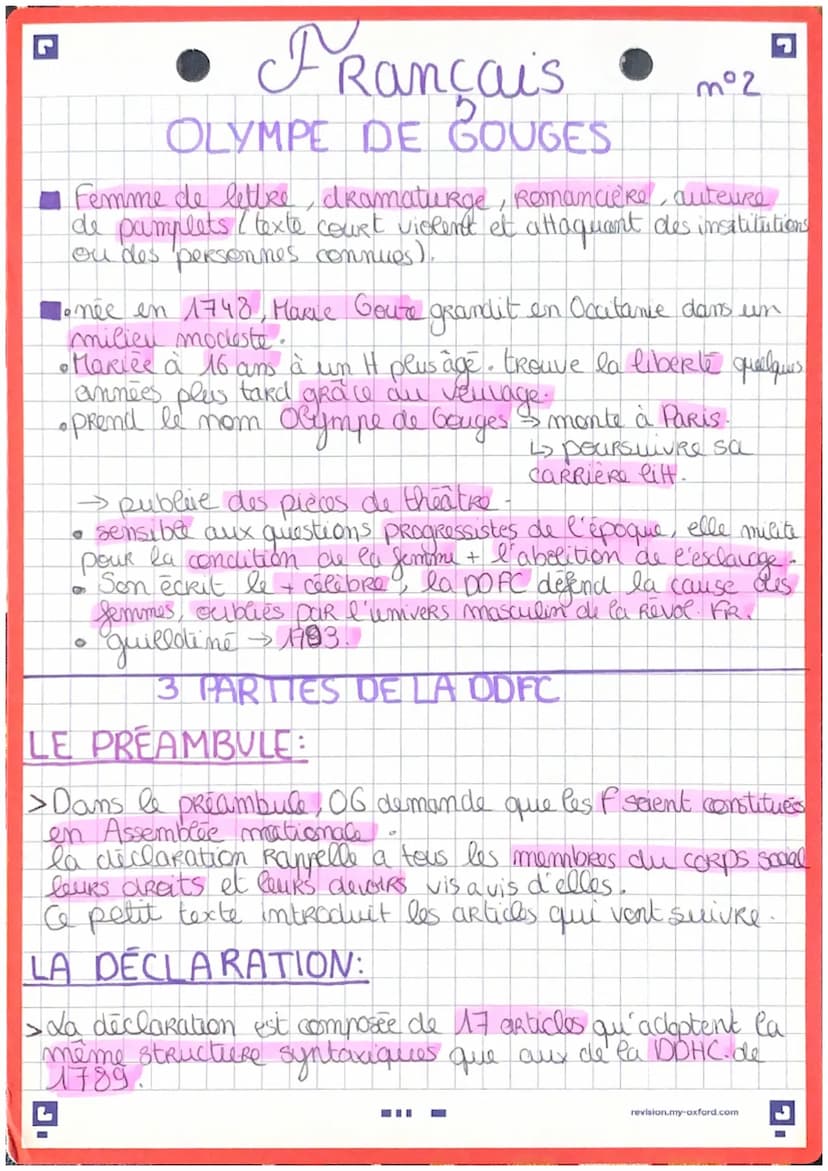 Français
n°2
OLYMPE DE GOUGES
Femme de lettre, dramaturge, Romancière, auteure
de pamplets (texte court violent et attaquant des institutions
ou des personnes connues).
• née en 1748, Marie Gouze grandit en Occitanie dans un
milieu modeste.
• Mariée à 16 ans à un H plus âgé. trouve la liberté quelques
années plus tard grâce au veuvage.
• prend le nom Olympe de Gouges → monte à Paris.
↳ poursuivre sa
carrière litt.
→ publie des pièces de théâtre.
• sensible aux questions progressistes de l'époque, elle milite
pour la condition de la femme + l'abolition de l'esclavge.
• Son écrit le + célèbre, la DDFC défend la cause des
femmes, oubliés par l'univers masculin de la Révol. FR.
• guillotiné → 1793.
3 PARTIES DE LA DDFC
LE PRÉAMBULE:
> Dans le préambule, OG demande que les F soient constitués
en Assemblée nationale.
la déclaration Rappelle à tous les membres du corps social
leurs droits et leurs devoirs vis à vis d'elles.
Ce petit texte introduit les articles qui vont suivre.
LA DÉCLARATION:
> La déclaration est composée de 17 articles qu'adoptent la
même structure syntaxiques que aux de la DDHC. de
1789.
revision.my-oxford.com